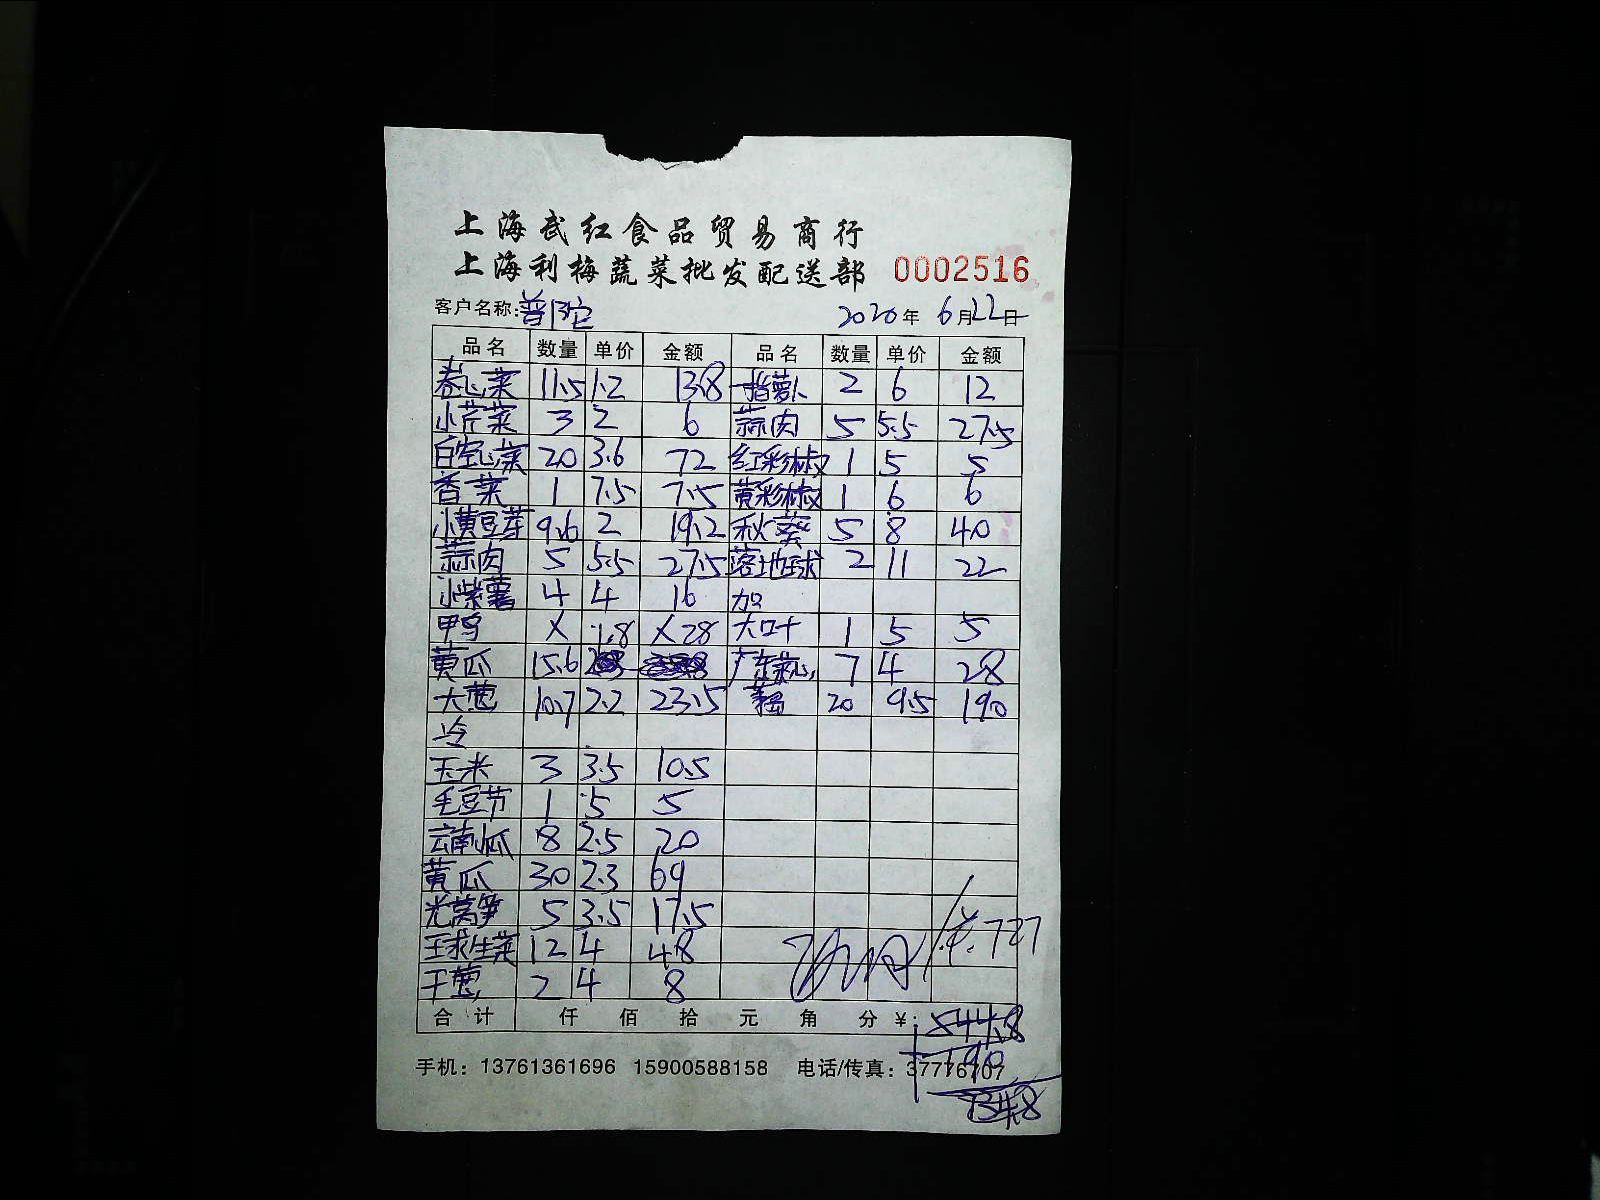 上海武红食品贸易商行
上海利梅蔬菜批发配送部 0002516
客户名称:普陀 2020年6月22日
品名 数量 单价 金额 品名 数量 单价 金额
卷心菜 11.5 1.2 13.8 一指萝卜 2 6 12
小芹菜 3 2 6 蒜肉 5 5.5 27.5
白空心菜 20 3.6 72 红彩椒 1 5 5
香菜 1 7.5 7.5 黄彩椒 1 6 6
小黄豆芽 9.6 2 19.2 秋葵 5 8 40
蒜肉 5 5.5 27.5 落地球 2 11 22
小紫薯 4 4 16 加
甲鸟 X 1.8 X 28 大叶 1 5 5
黄瓜 15.6 广东菜心 7 4 28
大葱 10.7 2.2 23.5 20 9.5 190
冷
玉米 3 3.5 10.5
毛豆节 1 5 5
云南小瓜 8 2.5 20
黄瓜 30 2.3 69
光莴笋 5 3.5 17.5
玉球生菜 12 4 48
干葱 2 4 8
727
合计 仟 佰 拾 元 角 分 ¥: 544.8
190
手机: 13761361696 15900588158 电话/传真: 37776707
734.8